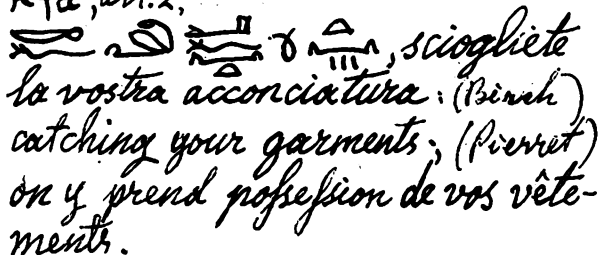 , sciogliete
la vostra acconciatura: (Birch)
catching your garments; (Pierret)
on y prend possession de vos vête-
ments.